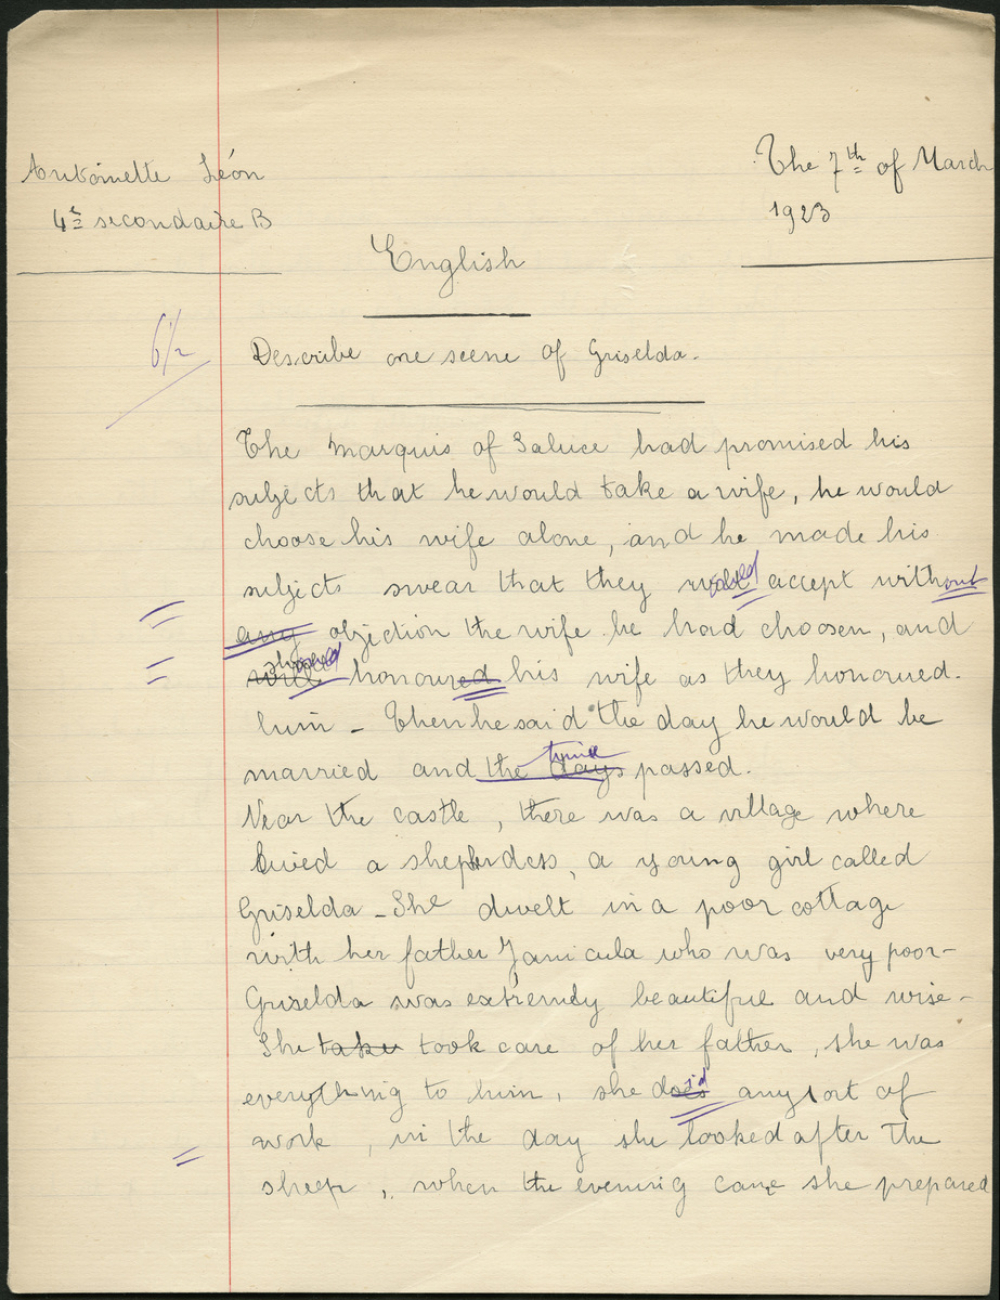 Antoinette Léón
The 7th of March
4e secondaire B
1923
English
6½
Describe one scene of Griselda.
The Marquis of Saluce had promised his
subjects that he would take a wife, he would
choose his wife alone, and he made his
subjects swear that they would accept without
any objection the wife he had choosen, and
should honoured his wife as they honoured
him - Then he said the day he would be
married and the days time passed.
Near the castle, there was a village where
lived a shepherdess, a young girl called
Griselda - She dwelt in a poor cottage
with her father Janicula who was very poor -
Griselda was extremely beautiful and wise -
She take took care of her father, she was
everything to him, she does did any sort of
work, in the day she looked after the
sheep, when the evening came she prepared